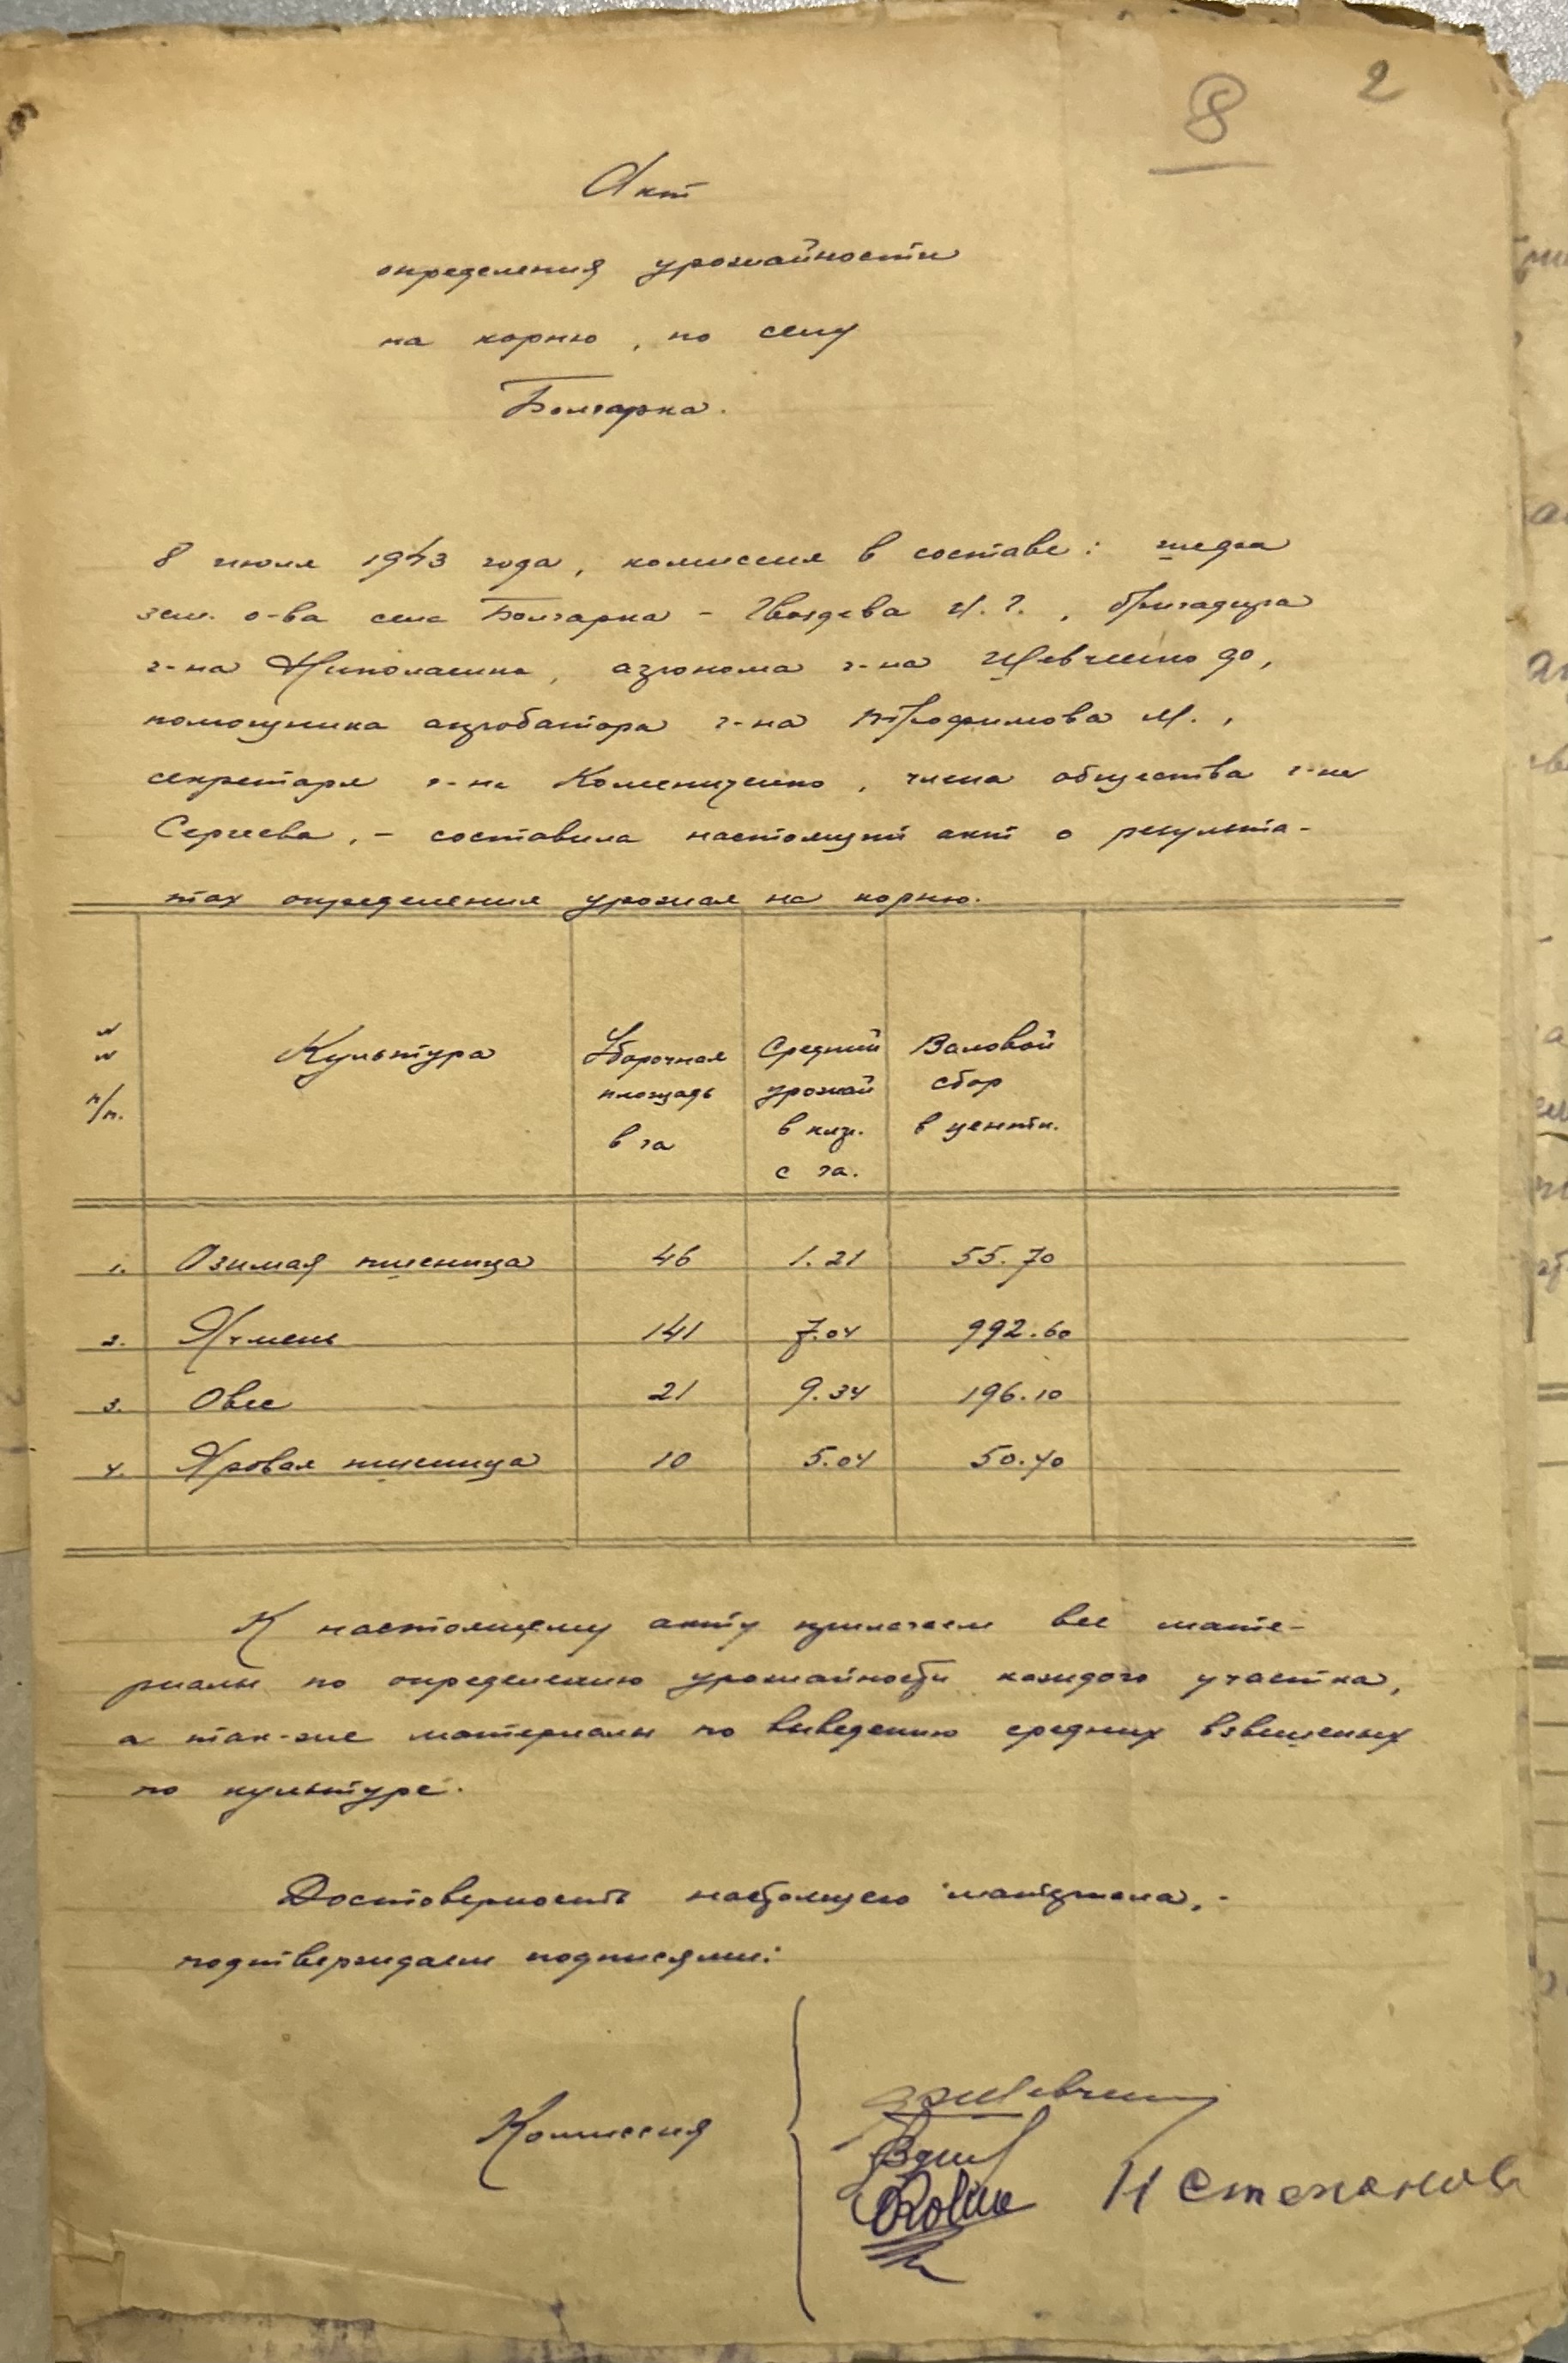 8 2
Акт
определения урожайности
на корню, по селу
Болгарка.
8 июля 1943 года, комиссия в составе:
зем. о-ва села Болгарка – Гвоздева И. Г., бригадира
г-на Николаенко, агронома г-на Шевченко
помощника апробатора г-на Трофимова М.,
секретаря г-на Коменященко, члена общества г-на
Сергеева, – составила настоящий акт о результа-
тах определения урожая на корню.
№ № п/п. Культура Уборочная площадь в га Средний урожай в с га. Валовой сбор в центн.
1. Озимая пшеница 46 1.21 55.70
2. Ячмень 141 7.04 992.60
3. Овес 21 9.34 196.10
4. Яровая пшеница 10 5.04 50.40
К настоящему акту прилагаем все мате-
риалы по определению урожайности каждого участка,
а так-же материалы по выведению средних взвешеных
по культуре.
Достоверность настоящего материала, -
подтверждаем подписями:
Комиссия
Н Степанов